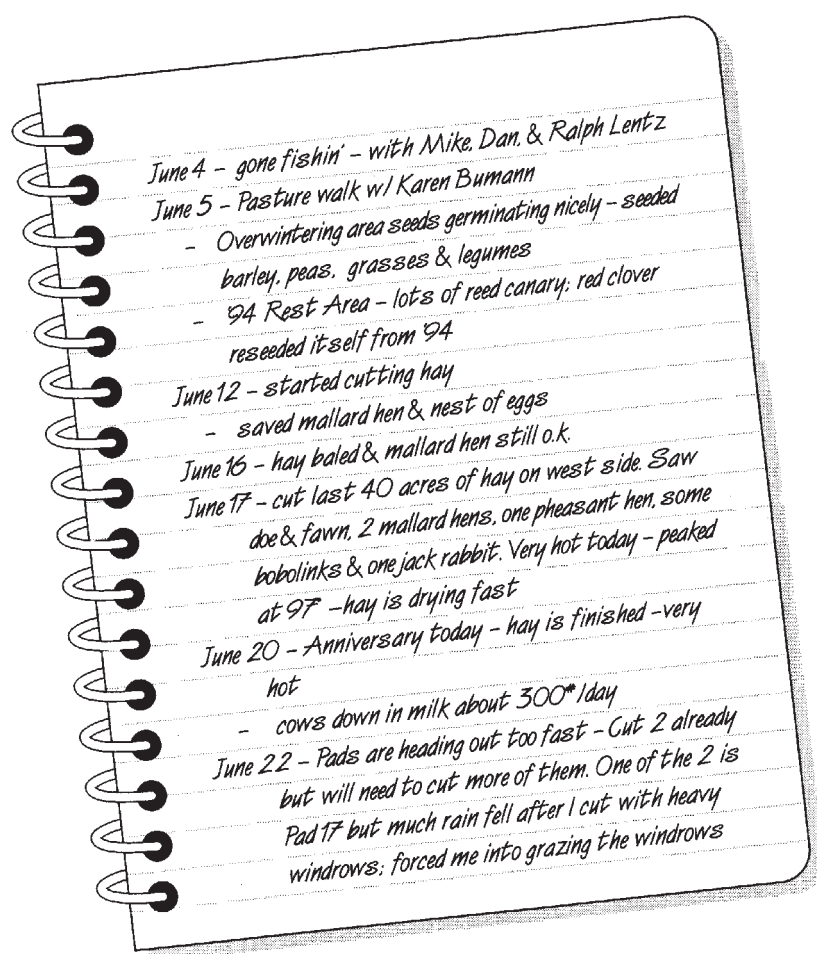 June 4 – gone fishin' – with Mike, Dan, & Ralph Lentz
June 5 – Pasture walk w/ Karen Bumann
– Overwintering area seeds germinating nicely – seeded
barley, peas, grasses & legumes
– '94 Rest Area – lots of reed canary; red clover
reseeded itself from '94
June 12 – started cutting hay
– saved mallard hen & nest of eggs
June 16 – hay baled & mallard hen still o.k.
June 17 – cut last 40 acres of hay on west side. Saw
doe & fawn, 2 mallard hens, one pheasant hen, some
bobolinks & one jack rabbit. Very hot today – peaked
at 97° – hay is drying fast
June 20 – Anniversary today – hay is finished – very
hot
– cows down in milk about 300#/day
June 22 – Pads are heading out too fast – Cut 2 already
but will need to cut more of them. One of the 2 is
Pad 17 but much rain fell after I cut with heavy
windrows; forced me into grazing the windrows